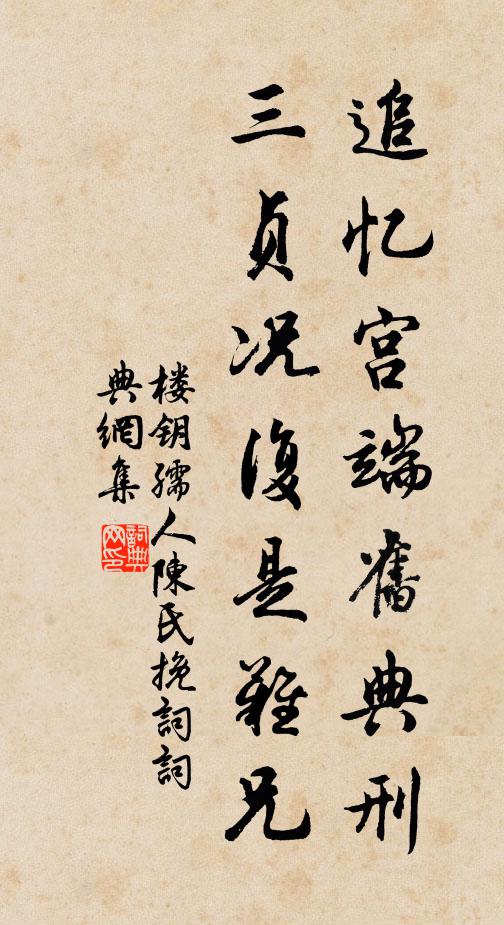 追忆宫端舊典刑
三贞况復是難兄
楼钥孺人陳氏挽詞詞
典網集
詞典
网印